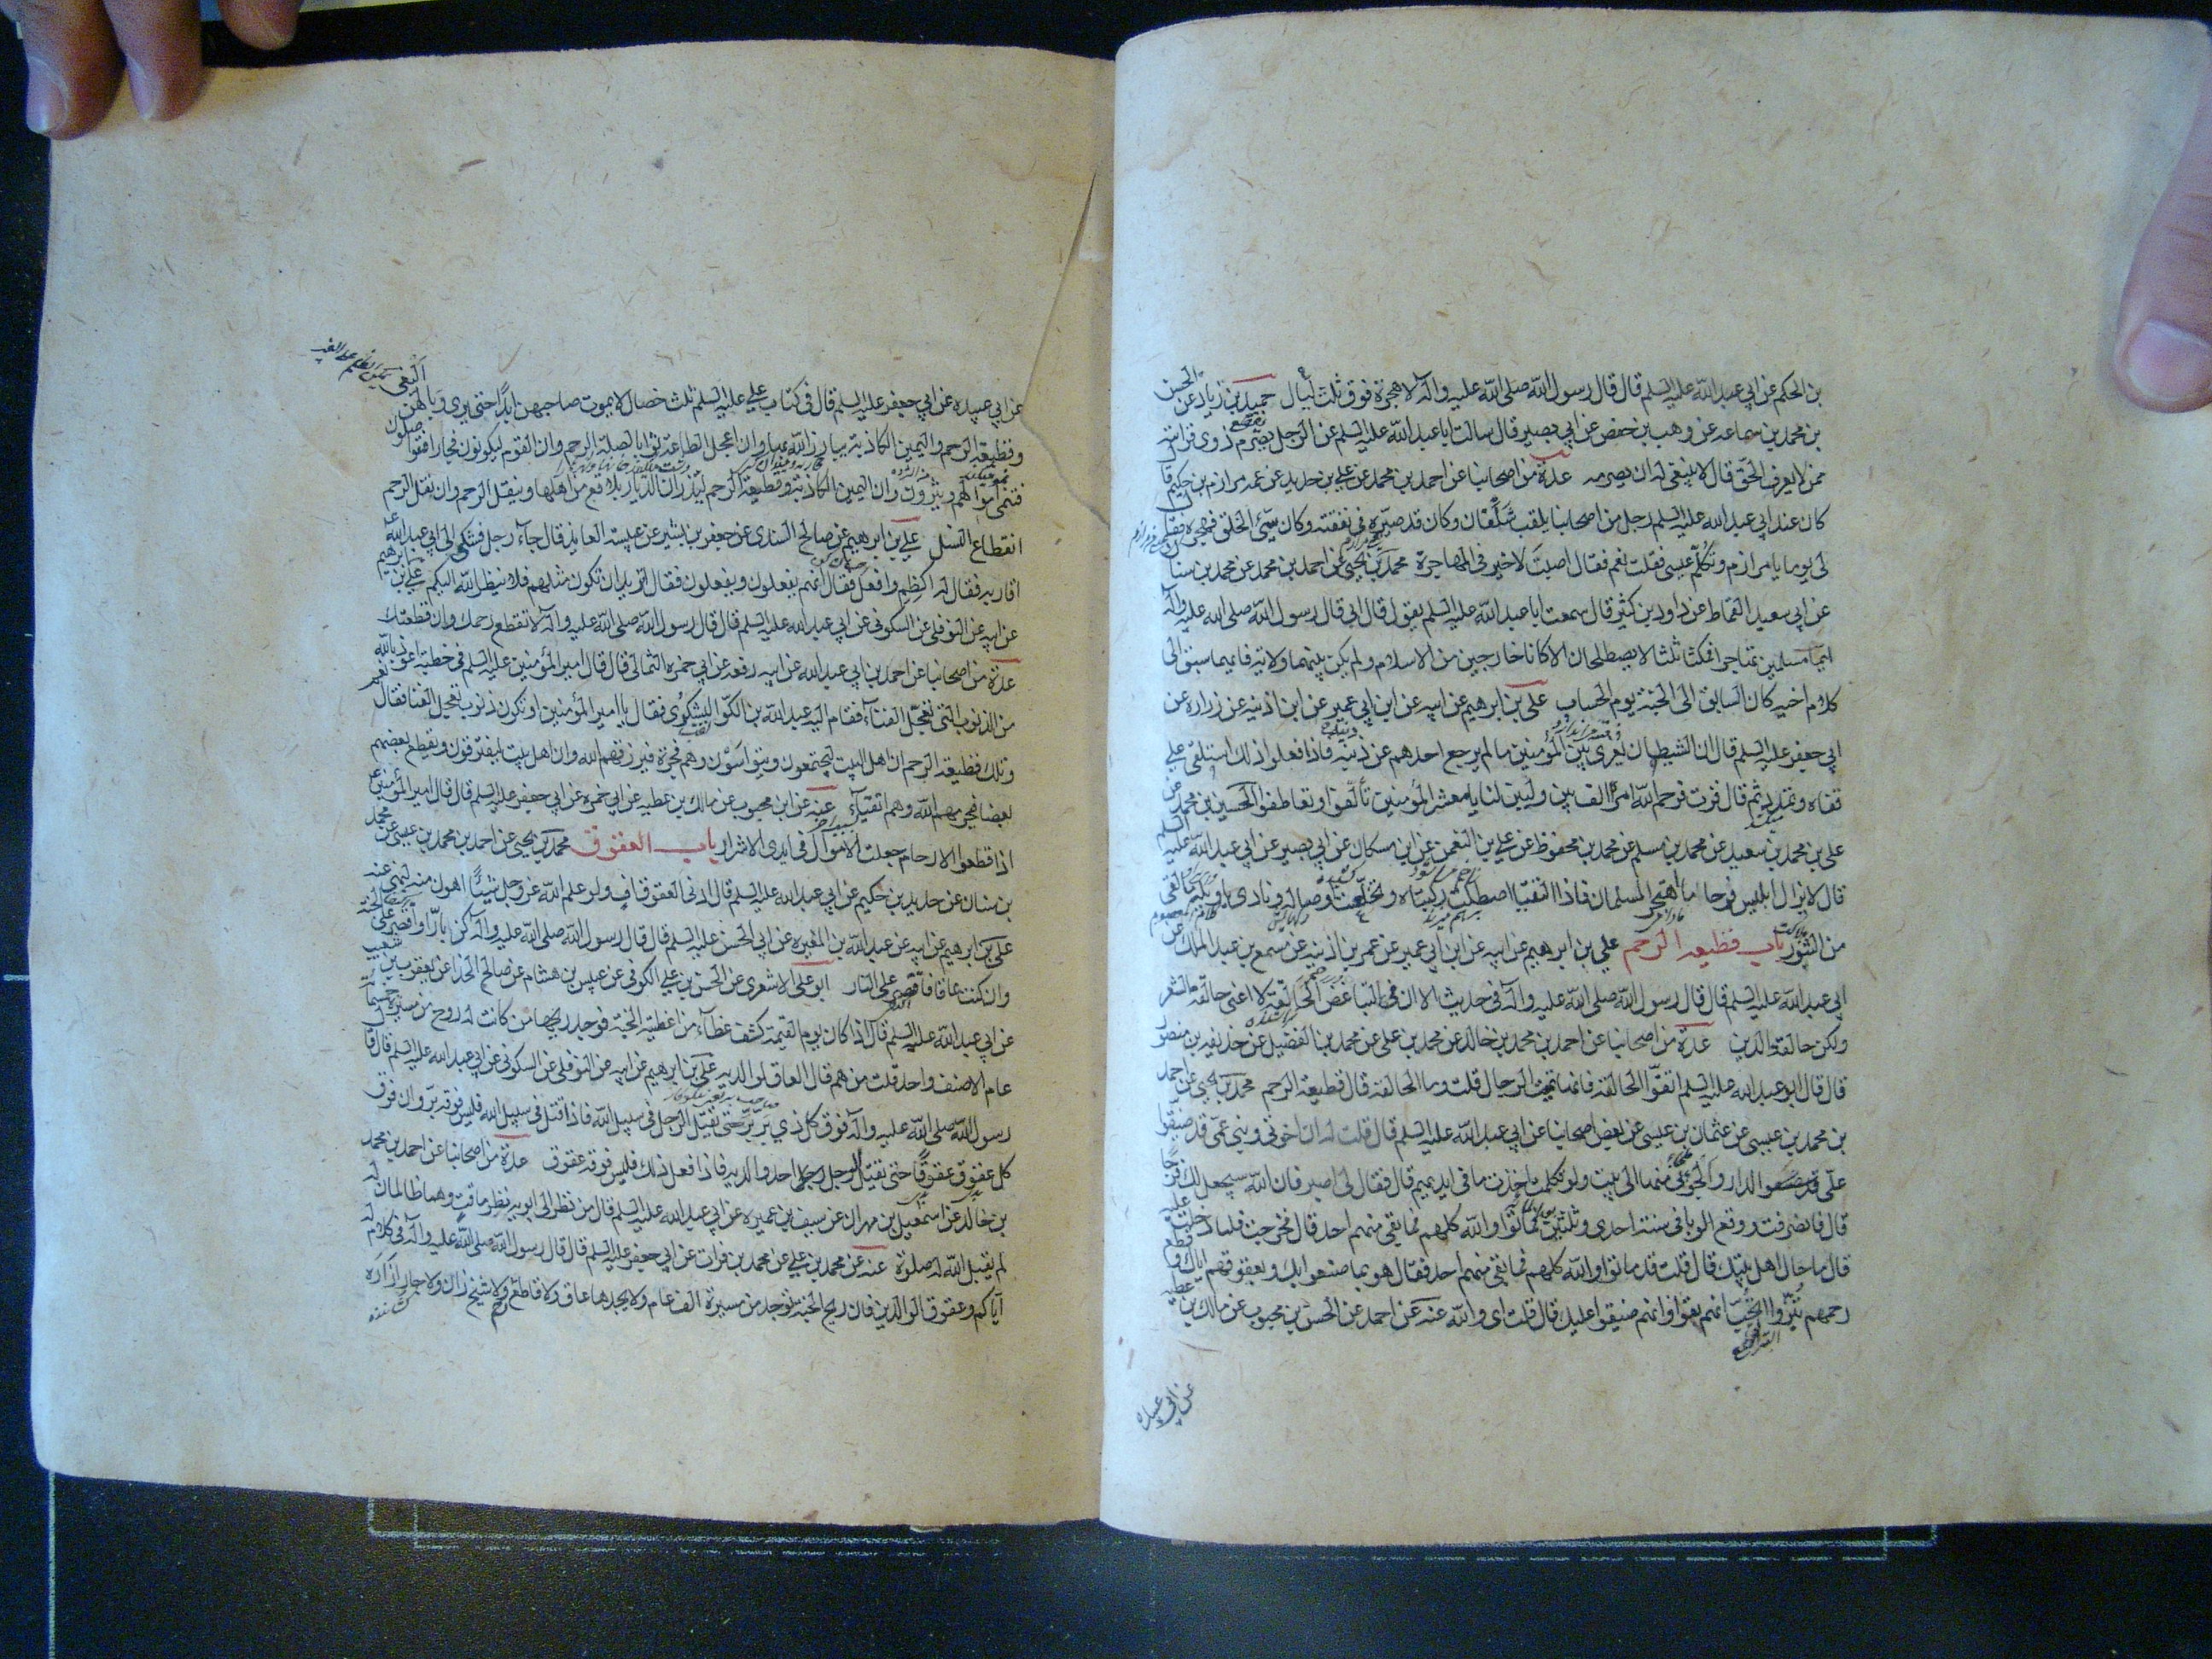 بن الحكم عن ابي عبد الله عليه السلم قال قال رسول الله صلى الله عليه وآله لا هجرة فوق ثلث ليال حميد بن زياد عن الحسن
بن محمد بن سماعه عن وهب بن حفص عن ابي بصير قال سالت ابا عبد الله عليه السلم عن الرجل يصرم ذوي قرابته
ممن لا يعرف الحق قال لا ينبغي له ان يصرمه عدة من اصحابنا عن احمد بن محمد عن علي بن حديد عن عمه مرازم بن حكيم قال
كان عند ابي عبد الله عليه السلم رجل من اصحابنا يلقب شلقان وكان قد صيره في نفقته وكان سيئ الخلق فهجره فقال
لي يوما يا مرازم وتكلم عيسى فقلت نعم فقال اصبت لا خير في المهاجرة محمد بن يحيى عن احمد بن محمد عن محمد بن سنان
عن ابي سعيد القماط عن داود بن كثير قال سمعت ابا عبد الله عليه السلم يقول قال ابي قال رسول الله صلى الله عليه وآله
ايما مسلمين تهاجرا فمكثا ثلثا لا يصطلحان الا كانا خارجين من الاسلام ولم يكن بينهما ولاية فايهما سبق الى
كلام اخيه كان السابق الى الجنة يوم الحساب علي بن ابرهيم عن ابيه عن ابن ابي عمير عن ابن اذينه عن زراره عن
ابي جعفر عليه السلم قال ان الشيطان يغري بين المؤمنين ما لم يرجع احدهم عن دينه فاذا فعلوا ذلك استلقى على
قفاه وتمدد ثم قال فزت فرحم الله امرأ الف بين وليين لنا يا معشر المؤمنين تألفوا وتعاطفوا الحسين بن محمد عن
علي بن محمد بن سعيد عن محمد بن مسلم عن محمد بن محفوظ عن علي بن النعمن عن ابن مسكان عن ابي بصير عن ابي عبد الله عليه السلم
قال لا يزال ابليس فرحا ما اهتجر المسلمان فاذا التقيا اصطكت ركبتاه وتخلعت اوصاله ونادى يا ويله ما لقي
من الثبور باب قطيعة الرحم علي بن ابرهيم عن ابيه عن ابن ابي عمير عن عمر بن اذينه عن مسمع بن عبد الملك عن
ابي عبد الله عليه السلم قال قال رسول الله صلى الله عليه وآله في حديث الا ان في التباغض الحالقة لا اعني حالقة الشعر
ولكن حالقة الدين عدة من اصحابنا عن احمد بن محمد بن خالد عن محمد بن علي عن محمد بن الفضيل عن حذيفه بن منصور
قال قال ابو عبد الله عليه السلم اتقوا الحالقه فانها تميت الرجال قلت وما الحالقه قال قطيعة الرحم محمد بن يحيى عن احمد
بن محمد بن عيسى عن عثمان بن عيسى عن بعض اصحابنا عن ابي عبد الله عليه السلم قال قلت له ان اخوتي وبني عمي قد ضيقوا
علي الدار والجؤني منها الى بيت ولو تكلمت اخذت ما في ايديهم قال فقال لي اصبر فان الله سيجعل لك فرجا
قال فانصرفت ووقع الوبا في سنة احدى وثلثين فماتوا والله كلهم فما بقي منهم احد قال فخرجت فلما دخلت عليه
قال ما حال اهل بيتك قال قلت قد ماتوا والله كلهم فما بقي منهم احد فقال هو بما صنعوا بك وبعقوقهم اياك وقطع
رحمهم بتروا اتحب انهم بقوا وانهم ضيقوا عليك قال قلت اي والله عنه عن احمد عن الحسن بن محبوب عن مالك بن عطيه
عن ابي عبيده
عن ابي عبيده عن ابي جعفر عليه السلم قال في كتاب علي عليه السلم ثلث خصال لا يموت صاحبهن ابدا حتى يرى وبالهن البغي
وقطيعة الرحم واليمين الكاذبة يبارز الله بها وان اعجل الطاعة ثوابا لصلة الرحم وان القوم ليكونون فجارا فيتواصلون
فتنمى اموالهم ويثرون وان اليمين الكاذبة وقطيعة الرحم ليذران الديار بلاقع من اهلها وينقل الرحم وان نقل الرحم
انقطاع النسل علي بن ابرهيم عن صالح السندي عن جعفر بن بشير عن عنبسة العابد قال جاء رجل فشكى الى ابي عبد الله
اقاربه فقال له اكظم وافعل فقال انهم يفعلون ويفعلون فقال اتريد ان تكون مثلهم فلا ينظر الله اليكم علي بن ابرهيم
عن ابيه عن النوفلي عن السكوني عن ابي عبد الله عليه السلم قال قال رسول الله صلى الله عليه وآله لا تقطع رحمك وان قطعتك
عدة من اصحابنا عن احمد بن ابي عبد الله عن ابيه رفعه عن ابي حمزه الثمالي قال قال امير المؤمنين عليه السلم في خطبته اعوذ بالله
من الذنوب التي تعجل الفناء فقام اليه عبد الله بن الكوا اليشكري فقال يا امير المؤمنين او تكون ذنوب تعجل الفنا فقال نعم
وتلك قطيعة الرحم ان اهل البيت ليجتمعون ويتواسون وهم فجرة فيرزقهم الله وان اهل بيت ليفترقون ويقطع بعضهم
بعضا فيحرمهم الله وهم اتقياء عنه عن ابن محبوب عن مالك بن عطيه عن ابي حمزه عن ابي جعفر عليه السلم قال قال امير المؤمنين
اذا قطعوا الارحام جعلت الاموال في ايدي الاشرار باب العقوق محمد بن يحيى عن احمد بن محمد بن عيسى عن محمد
بن سنان عن حديد بن حكيم عن ابي عبد الله عليه السلم قال ادنى العقوق اف ولو علم الله عز وجل شيئا اهون منه لنهى عنه
علي بن ابرهيم عن ابيه عن عبد الله بن المغيره عن ابي الحسن عليه السلم قال قال رسول الله صلى الله عليه وآله كن بارا واقصر على الجنة
وان كنت عاقا فاقصر على النار ابو علي الاشعري عن الحسن بن علي الكوفي عن عبيس بن هشام عن صالح الحذا عن يعقوب بن شعيب
عن ابي عبد الله عليه السلم قال اذا كان يوم القيمة كشف غطاء من اغطية الجنة فوجد ريحها من كانت له روح من مسيرة خمسمائة
عام الا صنف واحد قلت من هم قال العاق لوالديه علي بن ابرهيم عن ابيه عن النوفلي عن السكوني عن ابي عبد الله عليه السلم قال قال
رسول الله صلى الله عليه وآله فوق كل ذي بر بر حتى يقتل الرجل في سبيل الله فاذا قتل في سبيل الله فليس فوقه بر وان فوق
كل عقوق عقوقا حتى يقتل الرجل احد والديه فاذا فعل ذلك فليس فوقه عقوق عدة من اصحابنا عن احمد بن محمد
بن خالد عن اسمعيل بن مهران عن سيف بن عميره عن ابي عبد الله عليه السلم قال من نظر الى ابويه نظر ماقت وهما ظالمان له
لم يقبل الله له صلوة عنه عن محمد بن علي عن محمد بن فرات عن ابي جعفر عليه السلم قال قال رسول الله صلى الله عليه وآله في كلام له
اياكم وعقوق الوالدين فان ريح الجنة توجد من مسيرة الف عام ولا يجدها عاق ولا قاطع رحم ولا شيخ زان ولا جار ازاره